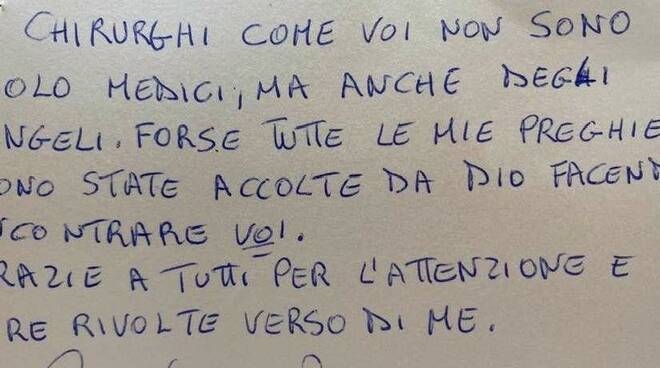 CHIRURGHI COME VOI NON SONO
OLO MEDICI, MA ANCHE DEGLI
NGELI. FORSE TUTTE LE MIE PREGHIE
ONO STATE ACCOLTE DA DIO FACEND
CONTRARE VOI.
RAZIE A TUTTI PER L'ATTENZIONE E
RE RIVOLTE VERSO DI ME.